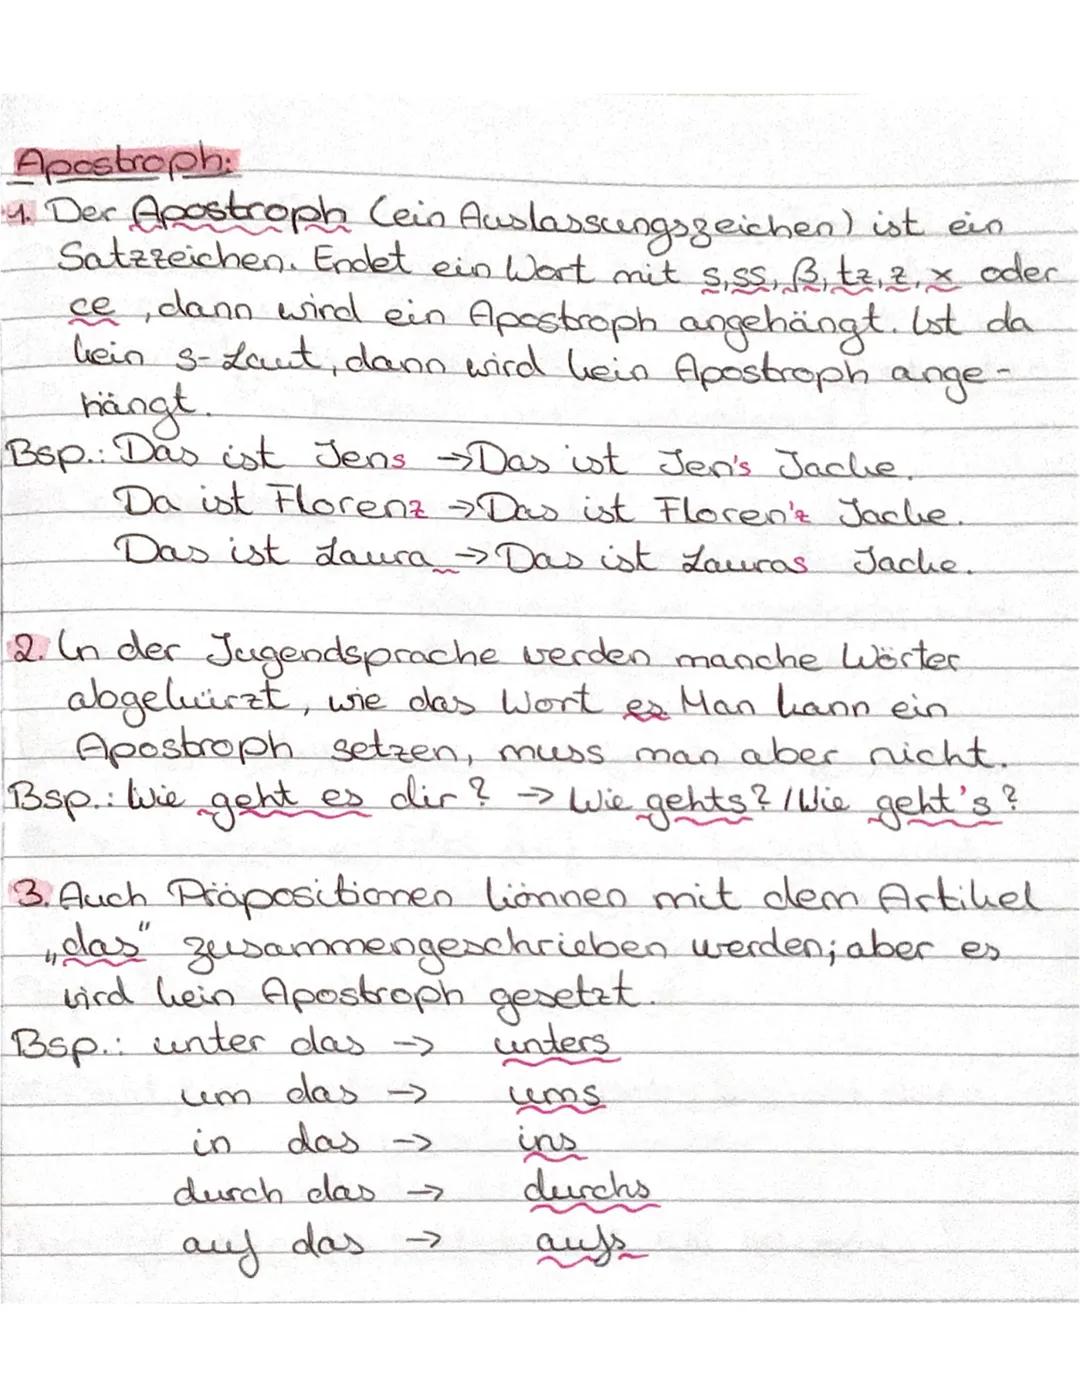 Apostroph:
1. Der Apostroph (ein Auslassungszeichen) ist ein
Satzzeichen. Endet ein Wort mit s, ss, ß, tz, z, x oder
ce, dann wird ein Apostroph angehängt. Ist da
kein s-Laut, dann wird kein Apostroph ange-
hängt.
Bsp.: Das ist Jens → Das ist Jen's Jacke.
Da ist Florenz → Das ist Floren'z Jacke.
Das ist Laura → Das ist Lauras Jacke.
2. In der Jugendsprache werden manche Wörter
abgekürzt, wie das Wort es. Man kann ein
Apostroph setzen, muss man aber nicht.
Bsp.: Wie geht es dir? → Wie gehts? / Wie geht's?
3. Auch Präpositionen können mit dem Artikel
„das" zusammengeschrieben werden; aber es
wird kein Apostroph gesetzt.
Bsp.: unter das → unters
um das → ums
in das → ins
durch das → durchs
auf das → aufs